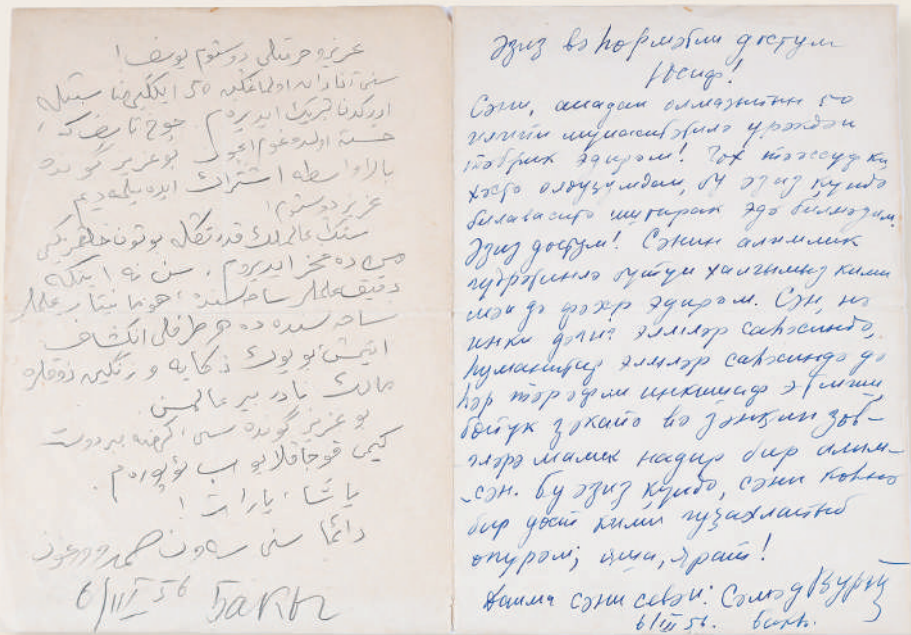 عزیز و حرمتلی دوستوم یوسف!
سنی آنادان اولماغنین ۵۰ ایللیگی مناسبتیله
اورکدن تبریک ایدیرم. چوخ تأسف که،
خسته اولدوغوم ایچون بو عزیز گونده
بالاواسطه اشتراک ایده بیلمه دیم.
عزیز دوستوم!
سنین عالملک قدرتنله بوتون خلقمز کیمی
من ده فخر ایدیرم. سن نه اینکه
دقیق علملر ساحه سنده، هومانیتار علملر
ساحه سنده ده هر طرفلی انکشاف
ایتمش بویوک ذکایه و زنگین ذوقلره
مالک نادر بیر عالمسن.
بو عزیز گونده سنی، کهنه بیر دوست
کیمی قوجاقلایوب ئوپورم.
یاشا، یارات!
دائما سنی سون صمد وورغون
6/III 56 Бакы
Әзиз вә һөрмәтли достум
Юсиф!
Сәни, анадан олмағынын 50
иллийи мүнасибәтилә үрәкдән
тәбрик эдирәм! Чох тәәссүф ки,
хәстә олдуғумдан, бу әзиз күндә
билаваситә иштирак эдә билмәдим.
Әзиз достум! Сәнин алимлик
гүдрәтинлә бүтүн халгымыз кими
мән дә фәхр эдирәм. Сән, нә
инки дәгиг элмләр саһәсиндә,
һуманитар элмләр саһәсиндә дә
һәр тәрәфли инкишаф этмиш
бөйүк зәкайә вә зәнкин зөв-
гләрә малик надир бир алим-
-сән. Бу әзиз күндә, сәни көһнә
бир дост кими гуҷахлайыб
өпүрәм; яша, ярат!
Даима сәни севән: Сәмәд Вурғун
6/III 56. Бакы.